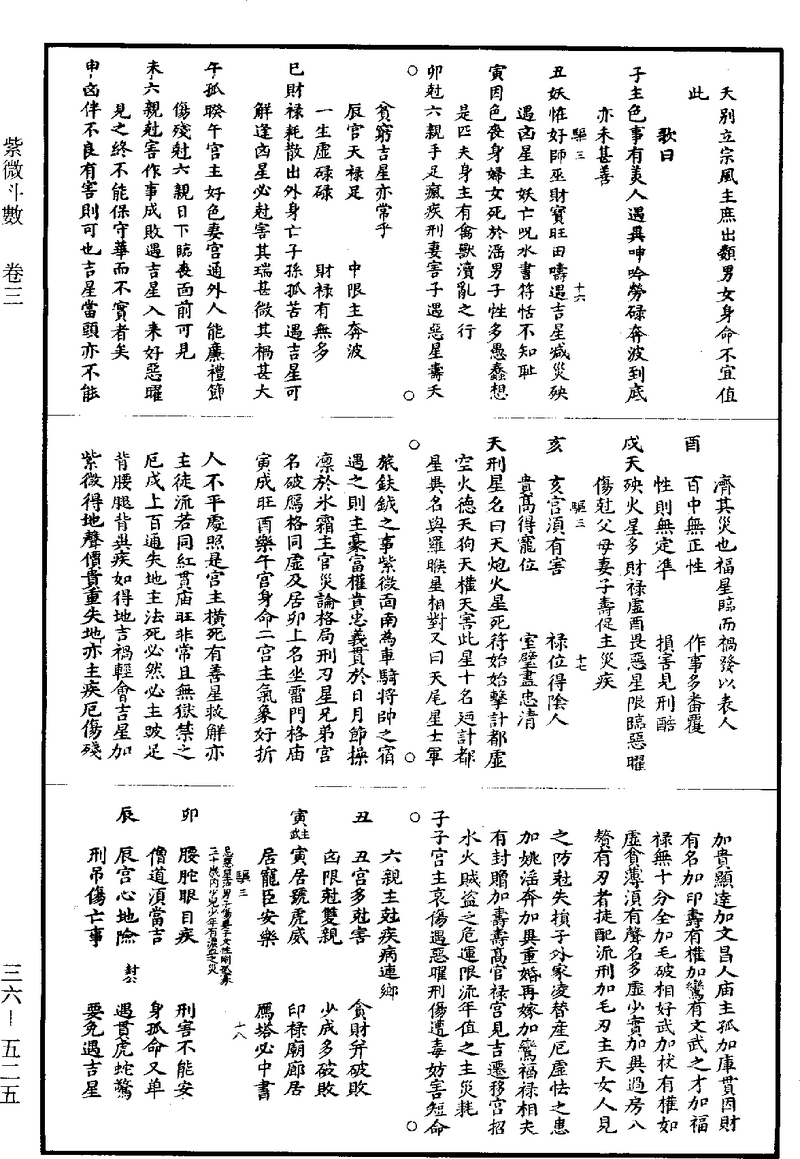 天別立宗風主庶出類男女身命不宜值
此
歌曰
子主色事有美人遇異呻吟勞碌奔波到底
亦未甚善
驅三　十六
丑妖怪好師巫財寶旺田疇遇吉星減災殃
遇凶星主妖亡呪水書符恬不知恥
寅因色喪身婦女死於淫男子性多愚蠢想
是匹夫身主有禽獸瀆亂之行
卯尅六親手足瘋疾刑妻害子遇惡星壽夭
貧窮吉星亦常乎
辰官天祿足　中限主奔波
一生虛碌碌　財祿有無多
巳財祿耗散出外身亡子孫孤苦遇吉星可
解逢凶星必尅害其瑞甚微其禍甚大
午孤睽午宮主好色妻宮通外人能廉禮節
傷殘尅六親日下臨喪面前可見
未六親尅害作事成敗遇吉星入來好惡曜
見之終不能保守華而不實者矣
申凶伴不良有害則可也吉星當頭亦不能
濟其災也福星臨而禍發以表人
酉　百中無正性　作事多番覆
性則無定準　損害見刑酷
戌天殃火星多財祿虛酉畏惡星限臨惡曜
傷尅父母妻子壽促主災疾
驅三　十七
亥　亥宮須有害　祿位得陰人
貴高得寵位　室壁盡忠清
天刑星名曰天炮火星死符始始擊計都虛
空火德天狗天權天害此星十名廵計都
星異名與羅睺星相對又曰天尾星士軍
旅鈇鉞之事紫微面南為車騎將帥之宿
遇之則主豪富權貴忠義貫於日月節操
凛於氷霜主官災論格局刑刃星兄弟宮
名破鴈格同虛及居卯上名坐雷門格庙
寅戌旺酉樂午宮身命二宮主氣象好折
人不平處照是宮主橫死有善星救觧亦
主徒流若同紅貫庙旺非常且無獄禁之
厄戌上百通失地主法死必然必主跛足
背腰腿背異疾如得地吉禍輕會吉星加
紫微得地聲價貴重失地亦主疾厄傷殘
加貴顯達加文昌人庙主孤加庫貫因財
有名加印壽有權加鸞有文武之才加福
祿無十分全加毛破相好武加杖有權如
虛貪薄須有聲名多虛少實加異過房八
贅有刃者徒配流刑加毛刃主夭女人見
之防尅失損子外家凌替産厄虛怯之患
加姚淫奔加異重婚再嫁加鸞福祿相夫
有封贈加壽壽高官祿宮見吉遷移宮招
水火賊盜之危運限流年值之主災耗
子子宮主哀傷遇惡曜刑傷遭毒妨害短命
六親主尅疾病連鄉
丑　丑宮多尅害　貪財并破敗
凶限尅雙親　少成多破敗
寅武主寅居號虎威　印祿廟廊居
居寵臣安樂　鴈塔必中書
驅三　十八
卯　腰駝眼目疾　刑害不能安
僧道須當吉　身孤命又单
辰　辰宮心地險　遇貫虎蛇驚
刑吊傷亡事　要免遇吉星
紫微斗數　卷三
三六－五二五